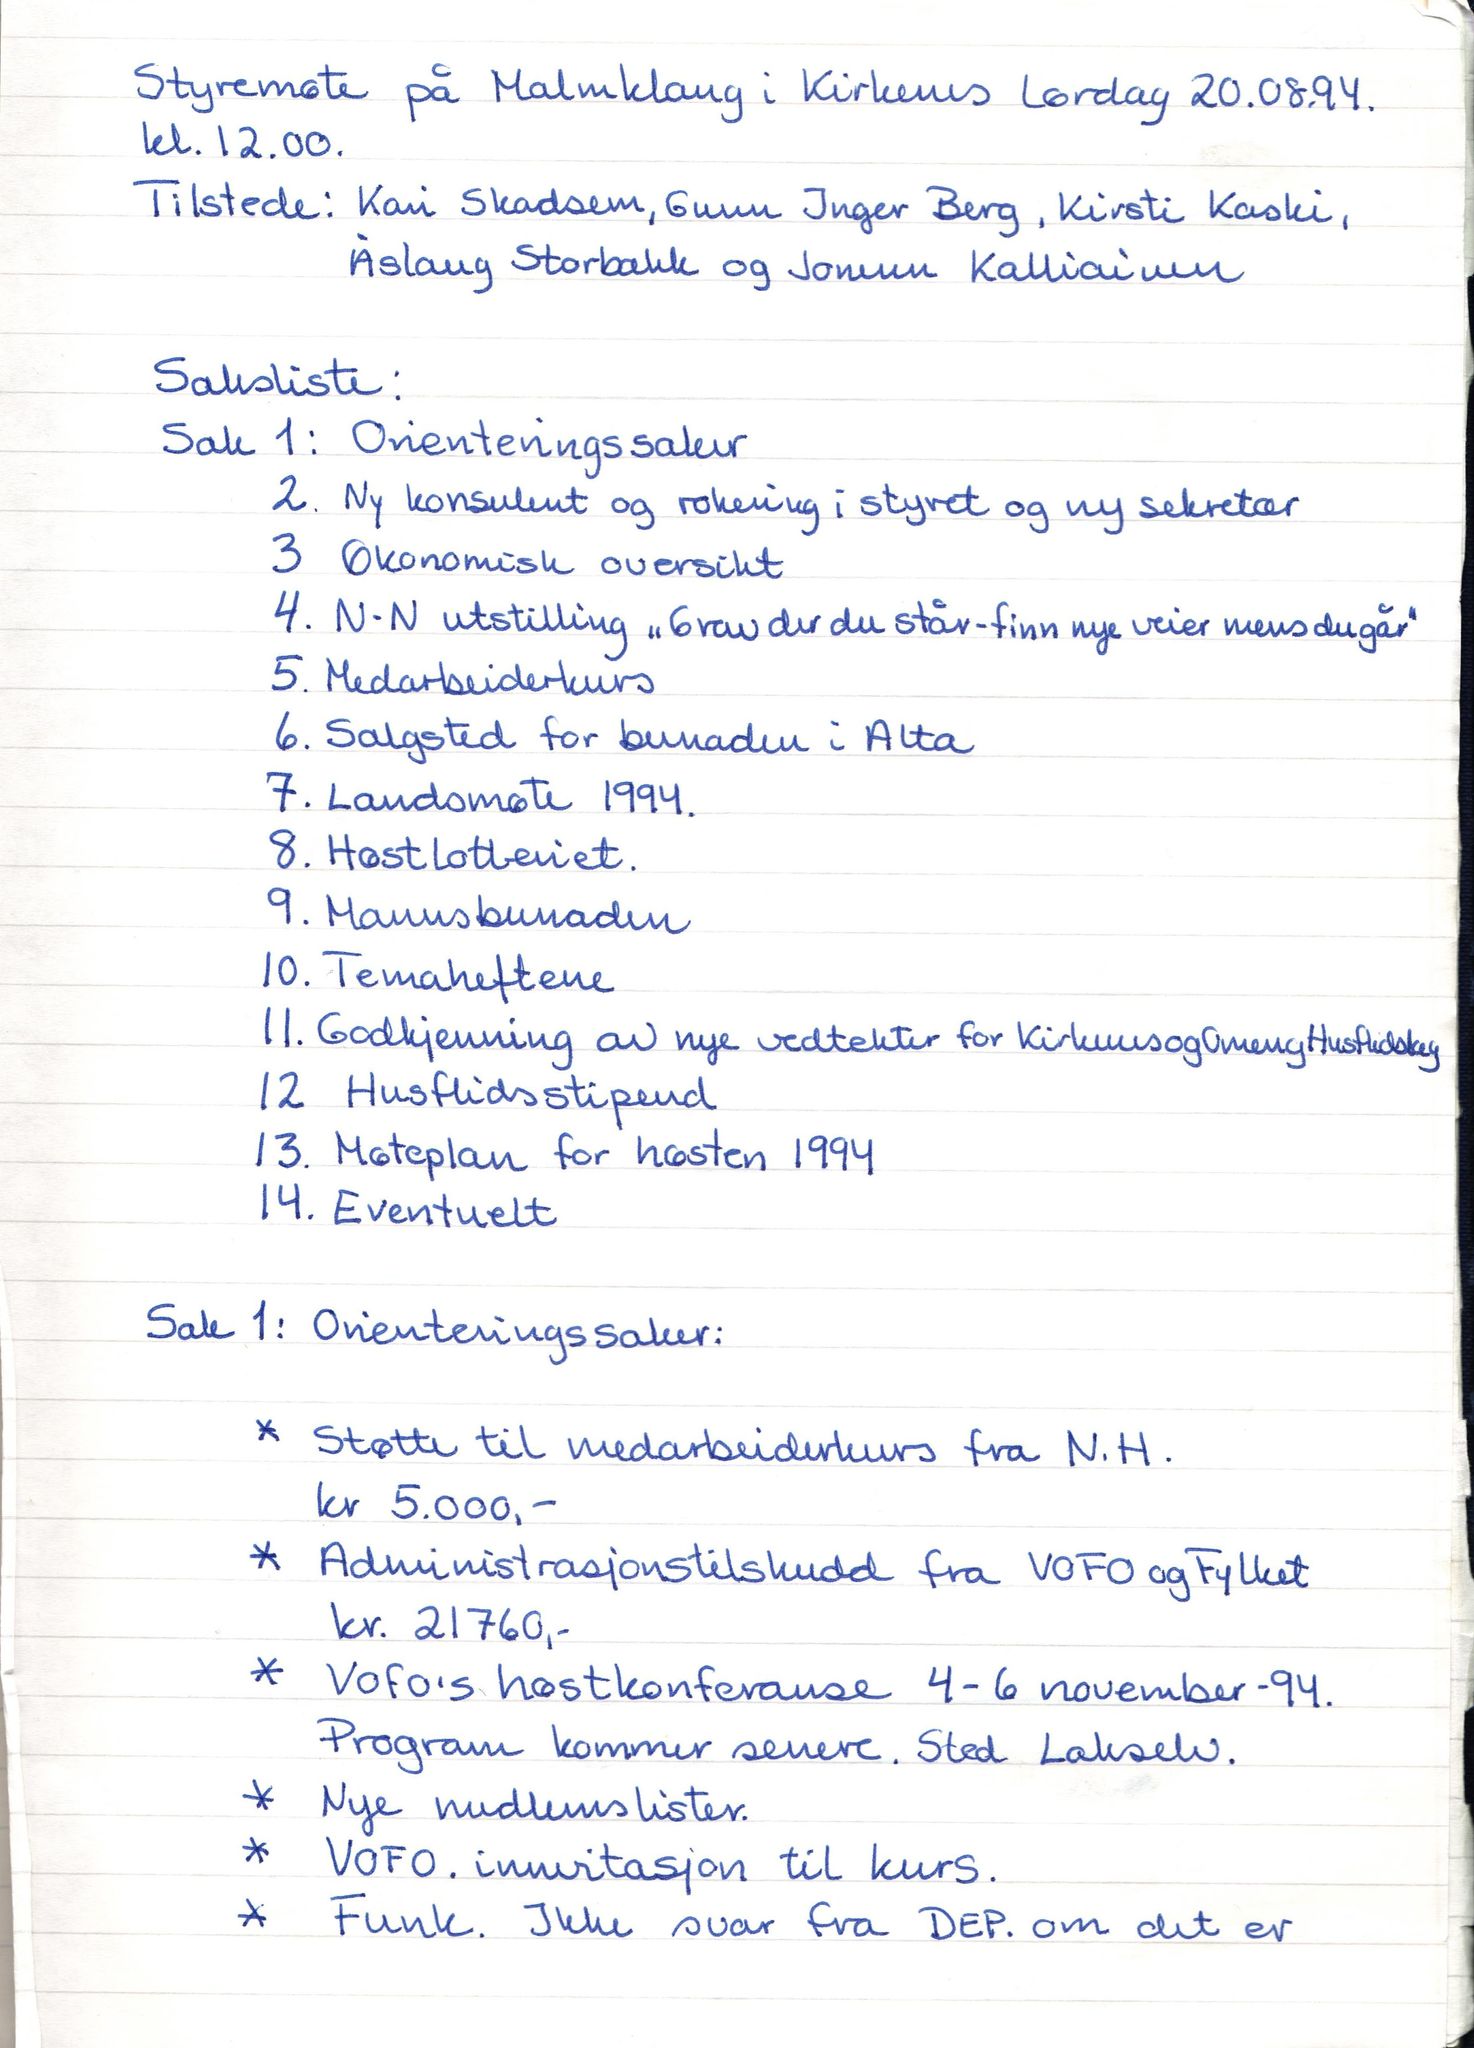 Styremøte på Malmklang i Kirkenes Lørdag 20.08.94.
kl. 12.00.
Tilstede: Kari Skadsem, Gunn Inger Berg, Kirsti Kaski,
Åslaug Storbakk og Jorunn Kalliainen
Saksliste:
Sak 1: Orienteringssaker
2. Ny konsulent og rokering i styret og ny sekretær
3 Økonomisk oversikt
4. N-N utstilling „Grav der du står - finn nye veier mens du går"
5. Medarbeiderkurs
6. Salgsted for bunaden i Alta
7. Landsmøte 1994.
8. Høstlotteriet.
9. Mannsbunaden
10. Temaheftene
11. Godkjenning av nye vedtekter for Kirkenes og Omeng Husflidslag
12 Husflidsstipend
13. Møteplan for høsten 1994
14. Eventuelt
Sak 1: Orienteringssaker:
* Støtte til medarbeiderkurs fra N.H.
kr 5.000,-
* Administrasjonstilskudd fra VOFO og Fylket
kr. 21760,-
* VOFO's høstkonferanse 4-6 november -94.
Program kommer senere. Sted Lakselv.
* Nye medlemslister.
* VOFO. innvitasjon til kurs.
* Funk. Ikke svar fra DEP. om det er